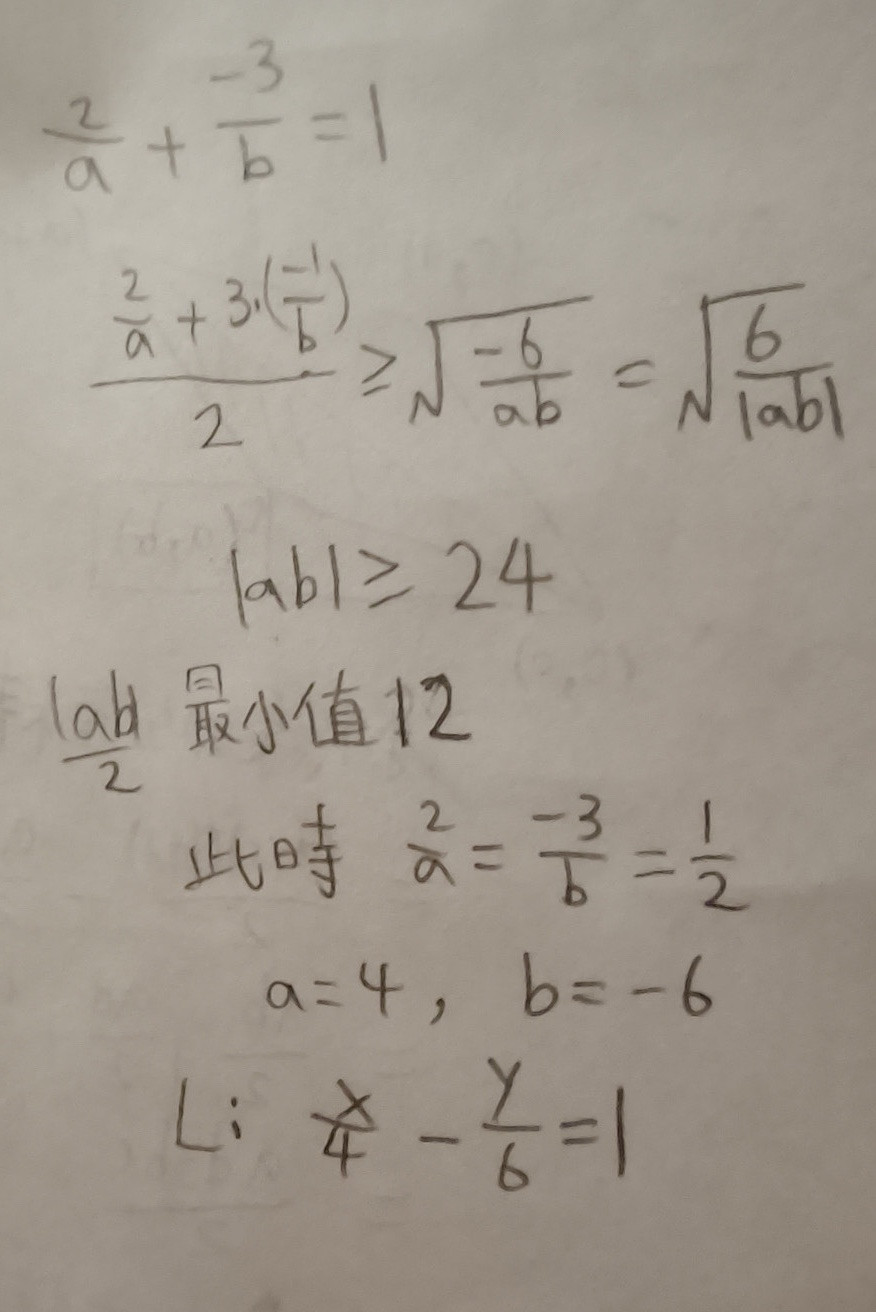 2/a + -3/b = 1
(2/a + 3·(-1/b))/2 ≥ √(-6/ab) = √(6/|ab|)
|ab| ≥ 24
|ab|/2 最小值12
此時 2/a = -3/b = 1/2
a=4, b=-6
L: x/4 - y/6 = 1